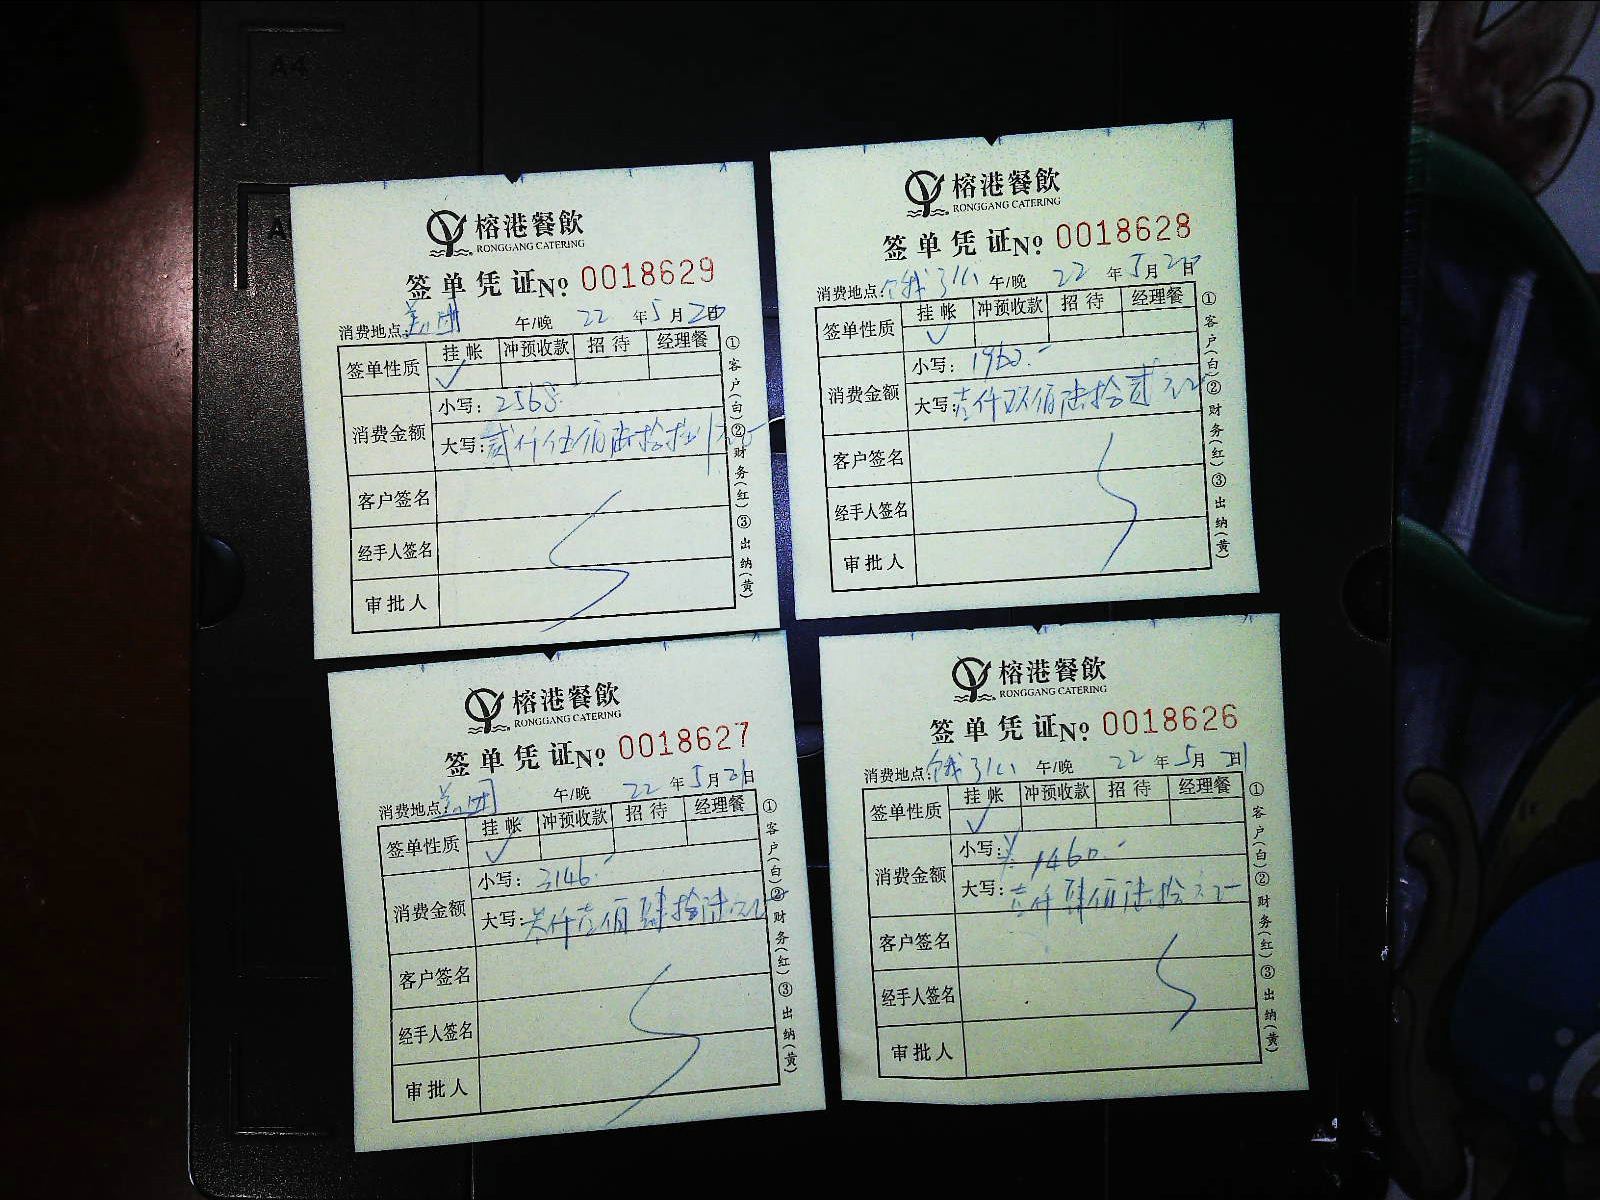 榕港餐飲
RONGGANG CATERING
签单凭证№ 0018629
消费地点:美团 午/晚 22年5月20日
签单性质 挂帐 冲预收款 招待 经理餐
✓
消费金额 小写: 2568.-
大写:贰仟伍佰陆拾捌元正
客户签名
经手人签名
审批人
①客户(白)②财务(红)③出纳(黄)
榕港餐飲
RONGGANG CATERING
签单凭证№ 0018628
消费地点:饿了么 午/晚 22年5月20日
签单性质 挂帐 冲预收款 招待 经理餐
✓
消费金额 小写: 1962.-
大写:壹仟玖佰陆拾贰元正
客户签名
经手人签名
审批人
①客户(白)②财务(红)③出纳(黄)
榕港餐飲
RONGGANG CATERING
签单凭证№ 0018627
消费地点:美团 午/晚 22年5月21日
签单性质 挂帐 冲预收款 招待 经理餐
✓
消费金额 小写: 3146.-
大写:叁仟壹佰肆拾陆元正
客户签名
经手人签名
审批人
①客户(白)②财务(红)③出纳(黄)
榕港餐飲
RONGGANG CATERING
签单凭证№ 0018626
消费地点:饿了么 午/晚 22年5月21日
签单性质 挂帐 冲预收款 招待 经理餐
✓
消费金额 小写:¥ 1460.-
大写:壹仟肆佰陆拾元正
客户签名
经手人签名
审批人
①客户(白)②财务(红)③出纳(黄)
A4